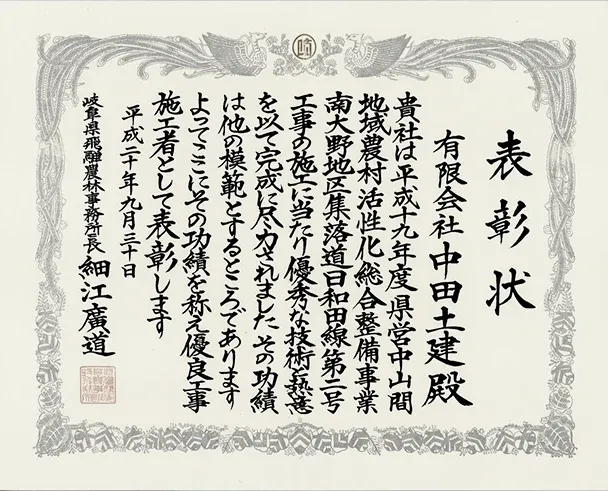 表彰状
有限会社中田土建殿
貴社は平成十九年度県営中山間
地域農村活性化総合整備事業
南大野地区集落道日和田線第二号
工事の施工に当たり優秀な技術と熱意
を以て完成に尽力されましたその功績
は他の模範とするところであります
よってここにその功績を称え優良工事
施工者として表彰します
平成二十年九月三十日
岐阜県飛騨農林事務所長 細江廣道